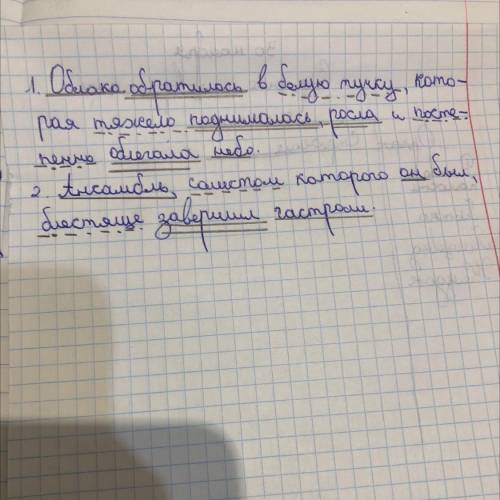 1. Облако обратилось в белую тучку, кото-
рая тяжело поднималась, росла и посте-
пенно облегала небо.
2. Ансамбль, солистом которого он был,
блестяще завершил гастроли.